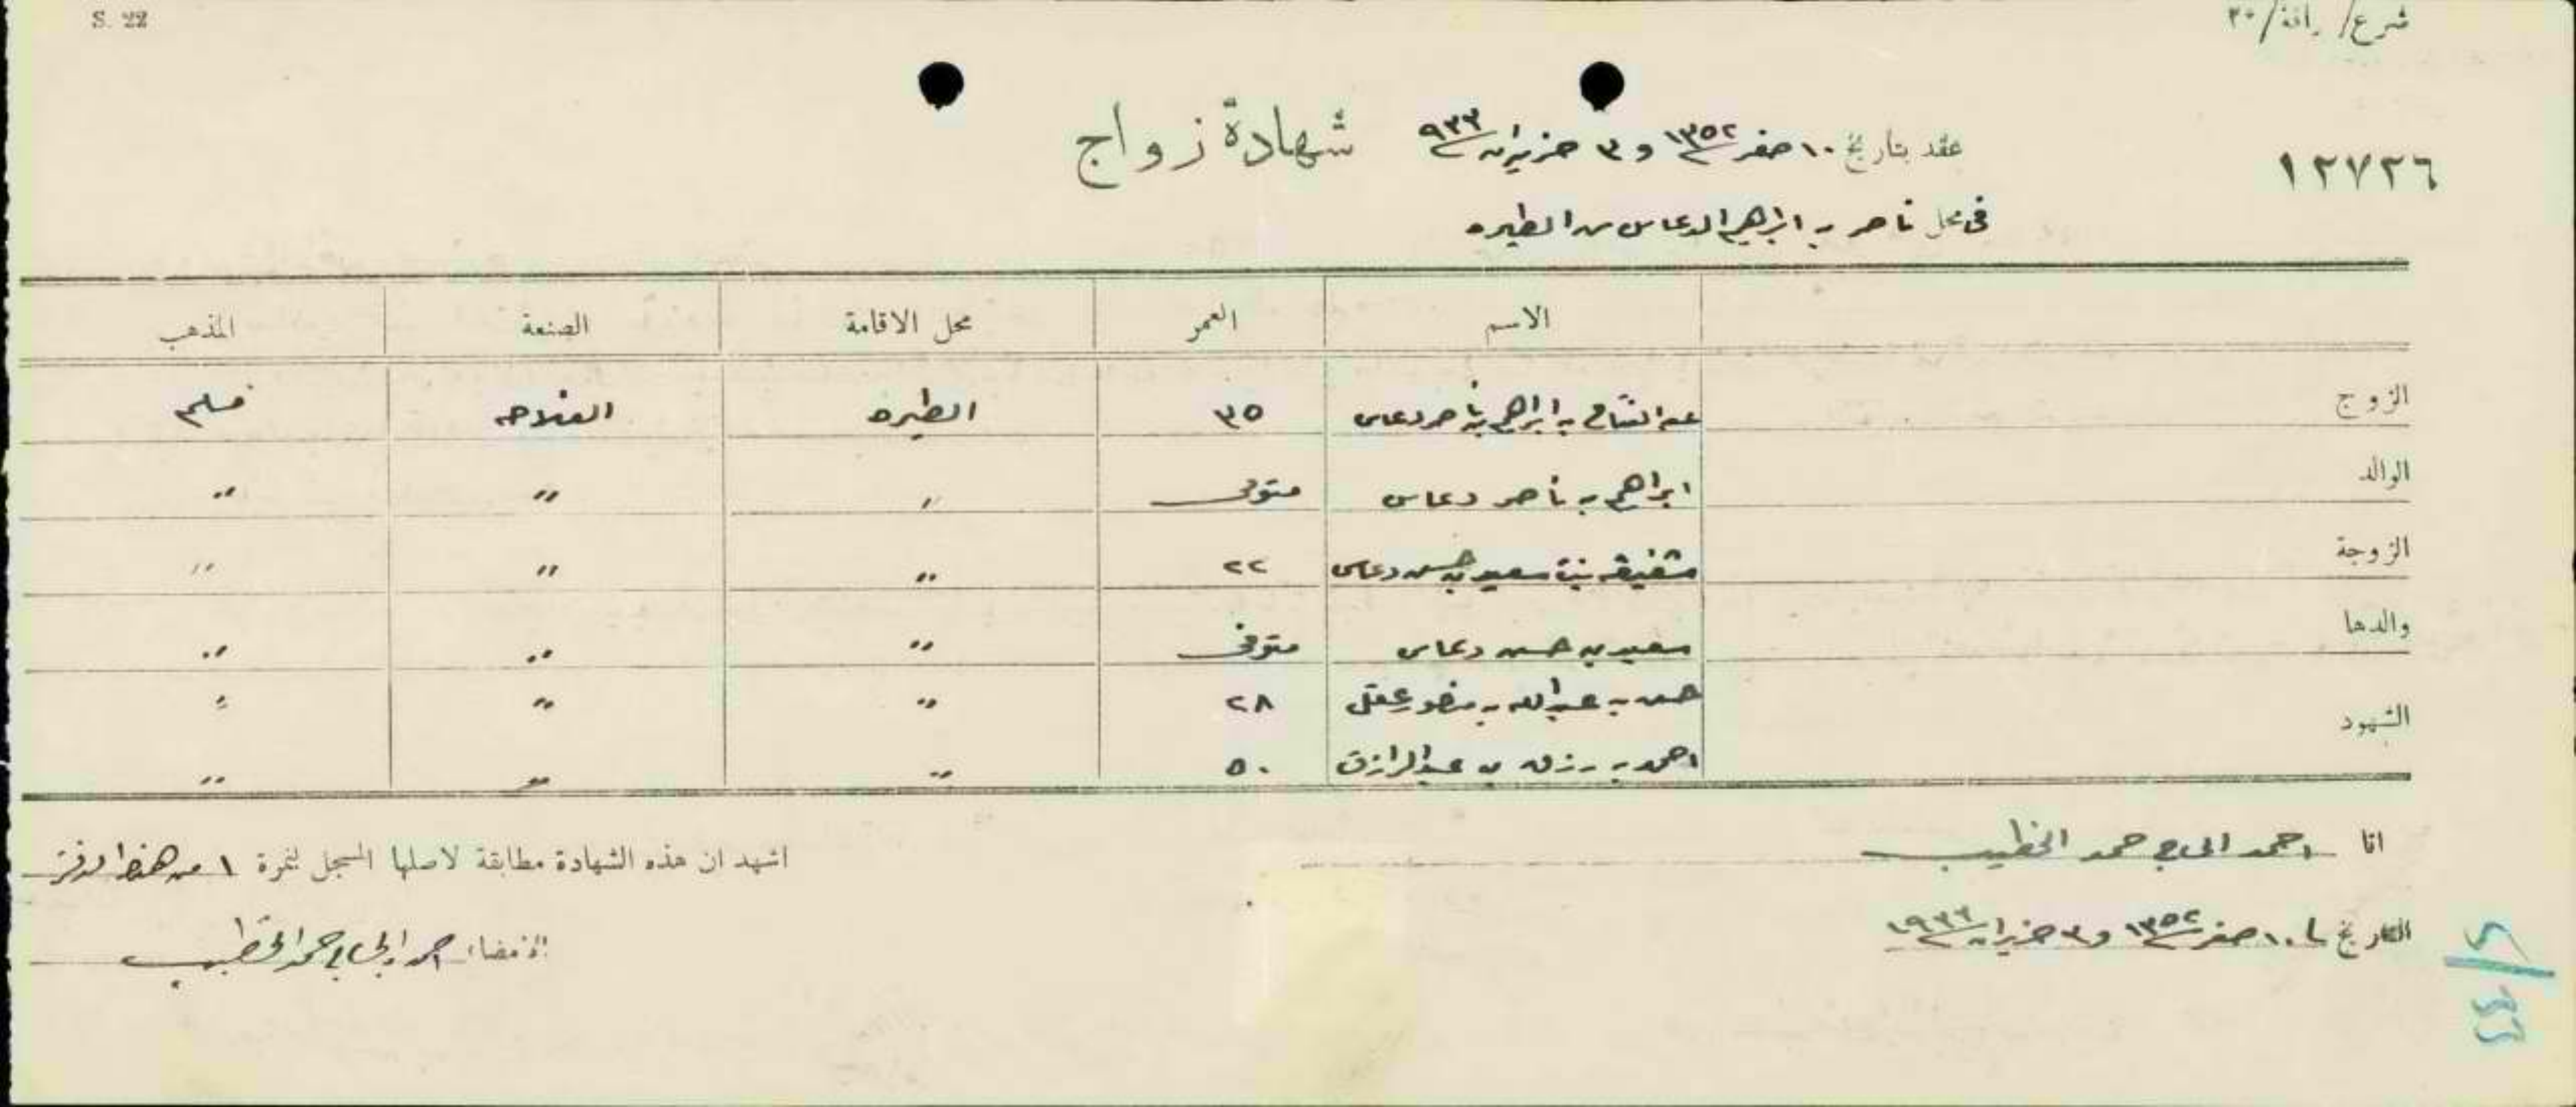 S. 22
شرع/ رافة/٢٠
١٢٧٢٦
شهادة زواج
عقد بتاريخ ١٠ صفر ١٣٥٢ و ٣ حزيران ٩٣٣
في محل ناصر بن ابراهيم الدعاس من الطيره
الاسم العمر محل الاقامة الصنعة المذهب
الزوج عبد الفتاح بن ابراهيم بن ناصر دعاس ٣٥ الطيره الفلاحه مسلم
الوالد ابراهيم بن ناصر دعاس متوفى " " "
الزوجة شفيقه بنت سعيد بن حسن دعاس ٢٢ " " "
والدها سعيد بن حسن دعاس متوفى " " "
الشهود حسن بن عبد الله بن منصور عقل ٢٨ " " "
احمد بن رزق بن عبد الرازق ٥٠ " " "
انا احمد الحاج حمد الخطيب اشهد ان هذه الشهادة مطابقة لاصلها المسجل لنمرة ١ من هذا الدفتر
التاريخ ١٠ صفر ١٣٥٢ و ٣ حزيران ١٩٣٣
الامضاء احمد الحاج حمد الخطيب